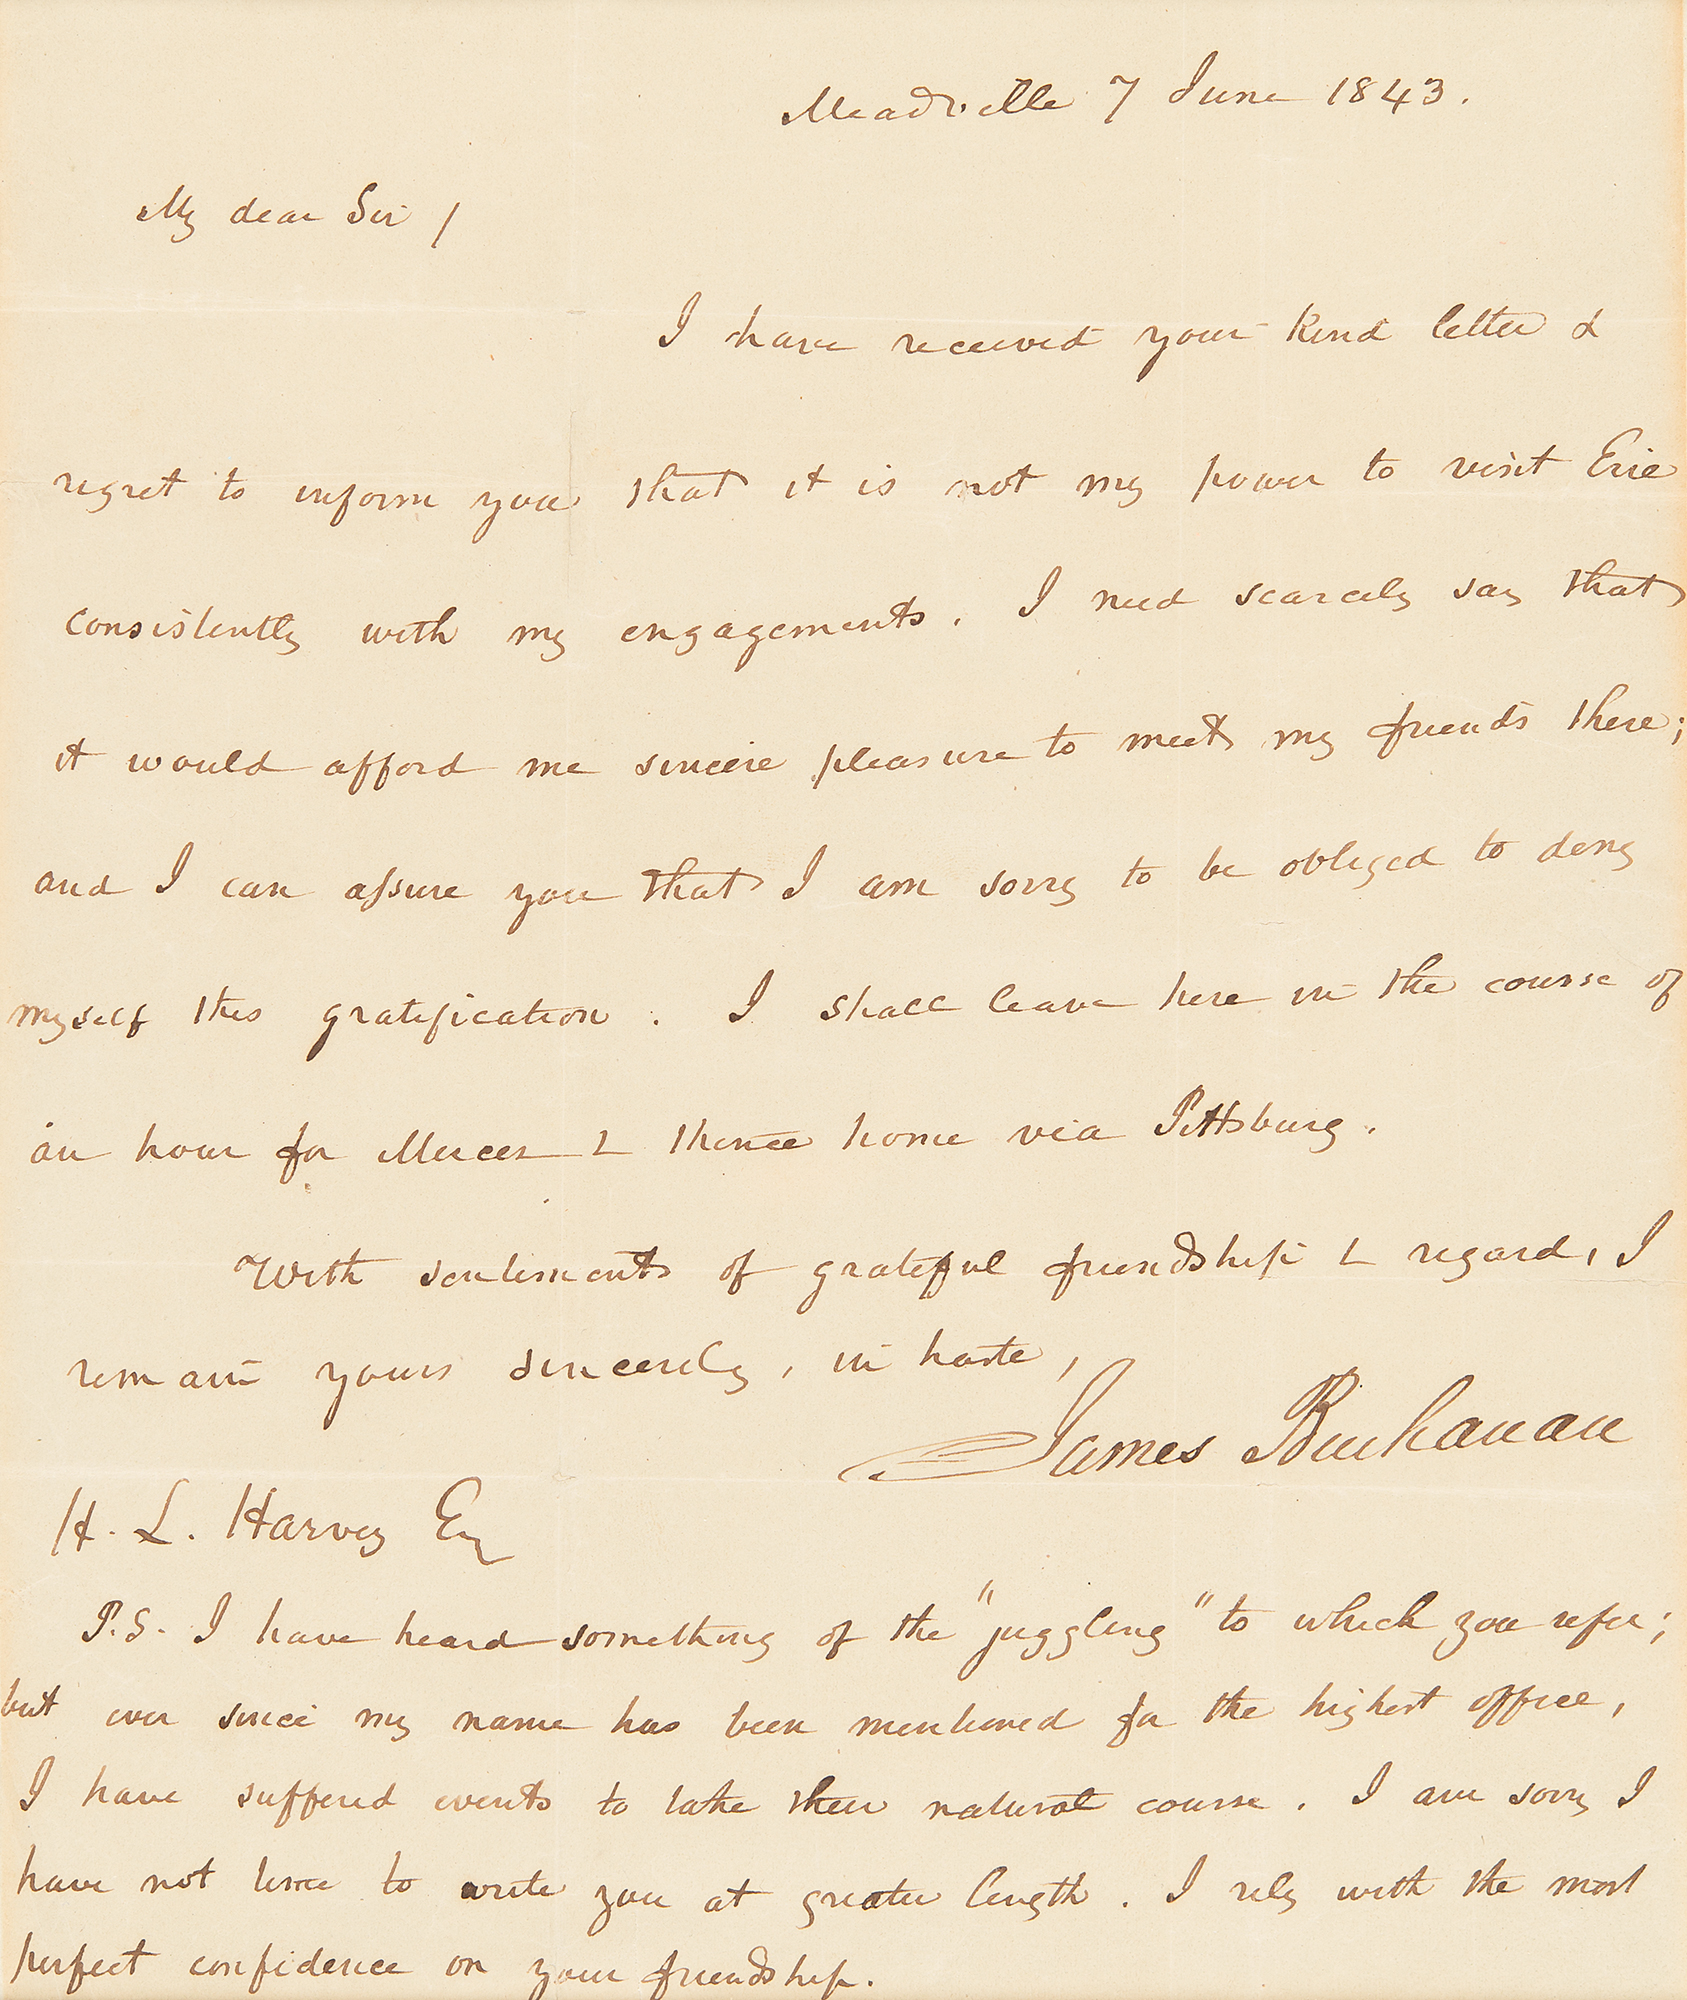 Meadville 7 June 1843.
My dear Sir /
I have received your kind letter &
regret to inform you that it is not my power to visit Erie
consistently with my engagements. I need scarcely say that
it would afford me sincere pleasure to meet my friends there;
and I can assure you that I am sorry to be obliged to deny
myself this gratification. I shall leave here in the course of
an hour for Mercer & thence home via Pittsburg.
With sentiments of grateful friendship & regard, I
remain yours sincerely, in haste,
James Buchanan
H. L. Harvey Esq
P.S. I have heard something of the "juggling" to which you refer;
but ever since my name has been mentioned for the highest office,
I have suffered events to take their natural course. I am sorry I
have not time to write you at greater length. I rely with the most
perfect confidence on your friendship.